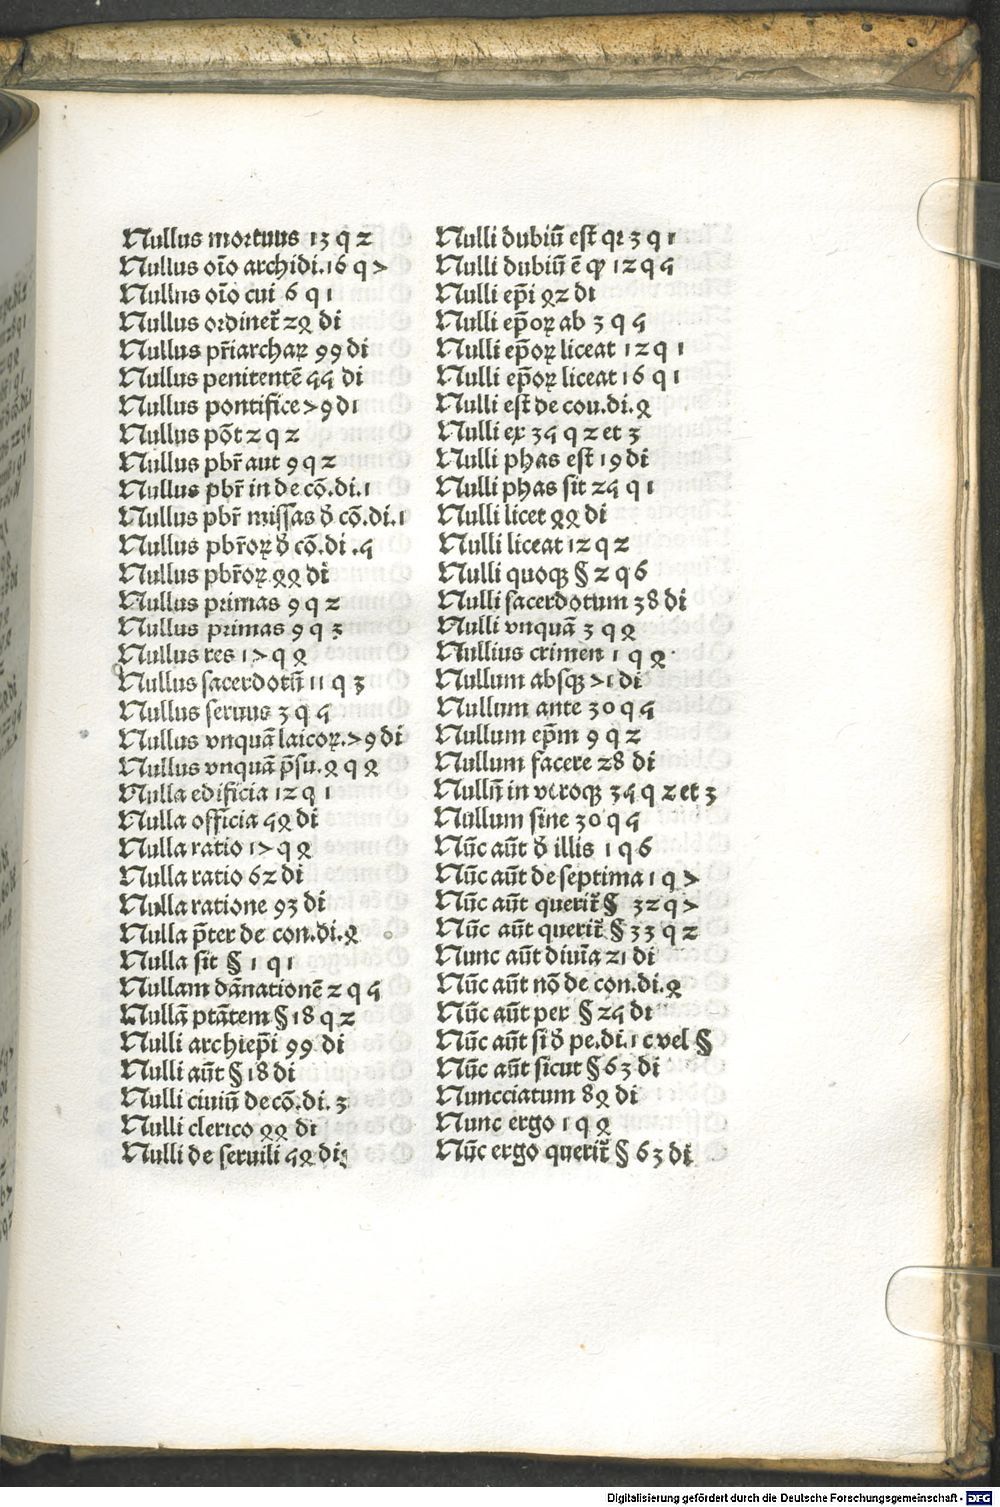 Nullus mortuus 13 q 2
Nullus oīo archidi. 16 q 7
Nullus oīo cui 6 q 1
Nullus ordinet̄ 25 di
Nullus pr̄iarchaꝝ 99 di
Nullus penitentē 44 di
Nullus pontifice 79 di
Nullus põt 2 q 2
Nullus pbr̄ aut 9 q 2
Nullus pbr̄ in de cō.di.1
Nullus pbr̄ missas ð cō.di.1
Nullus pbr̄oꝝ ð cō.di .4
Nullus pbr̄oꝝ 55 di
Nullus primas 9 q 2
Nullus primas 9 q 3
Nullus res 17 q 5
Nullus sacerdotū 11 q 3
Nullus seruus 3 q 4
Nullus vnquā laicoꝝ.79 di
Nullus vnquā p̄su.5 q 5
Nulla edificia 12 q 1
Nulla officia 45 di
Nulla ratio 17 q 5
Nulla ratio 62 di
Nulla ratione 93 di
Nulla p̄ter de con.di.5
Nulla sit § 1 q 1
Nullam dānationē 2 q 4
Nullā ptātem § 18 q 2
Nulli archiep̄i 99 di
Nulli aūt § 18 di
Nulli ciuiū de cō.di.3
Nulli clerico 55 di
Nulli de seruili 45 di
Nulli dubiū est̄ qr 3 q 1
Nulli dubiū ē ꝙ 12 q 4
Nulli ep̄i 52 di
Nulli ep̄oꝝ ab 3 q 4
Nulli ep̄oꝝ liceat 12 q 1
Nulli ep̄oꝝ liceat 16 q 1
Nulli est̄ de cou.di.5
Nulli ex 34 q 2 et 3
Nulli phas est̄ 19 di
Nulli phas sit 24 q 1
Nulli licet 55 di
Nulli liceat 12 q 2
Nulli quoqꝫ § 2 q 6
Nulli sacerdotum 38 di
Nulli vnquā 3 q 5
Nullius crimen 1 q 5
Nullum absqꝫ 71 di
Nullum ante 30 q 4
Nullum ep̄m 9 q 2
Nullum facere 28 di
Nullū in vtroqꝫ 34 q 2 et 3
Nullum sine 30 q 4
Nūc aūt ð illis 1 q 6
Nūc aūt de septima 1 q 7
Nūc aūt querit̄ § 32 q 7
Nūc aūt querit̄ § 33 q 2
Nunc aūt diuīa 21 di
Nūc aūt nō de con.di.5
Nūc aūt per § 24 di
Nūc aūt si ð pe.di.1 c vel §
Nūc aūt sicut § 63 di
Nuncciatum 85 di
Nunc ergo 1 q 5
Nūc ergo querit̄ § 63 di
Digitalisierung gefördert durch die Deutsche Forschungsgemeinschaft - DFG